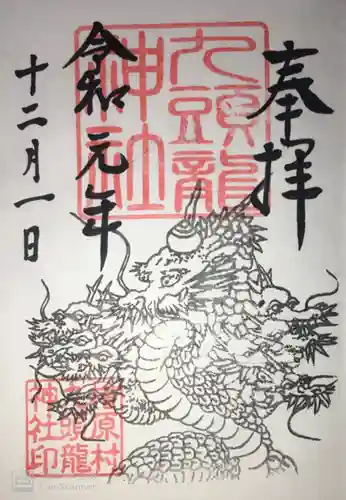 奉拝
九頭龍
神社
令和元年
十二月一日
檜原村
九頭龍
神社印
CamScanner